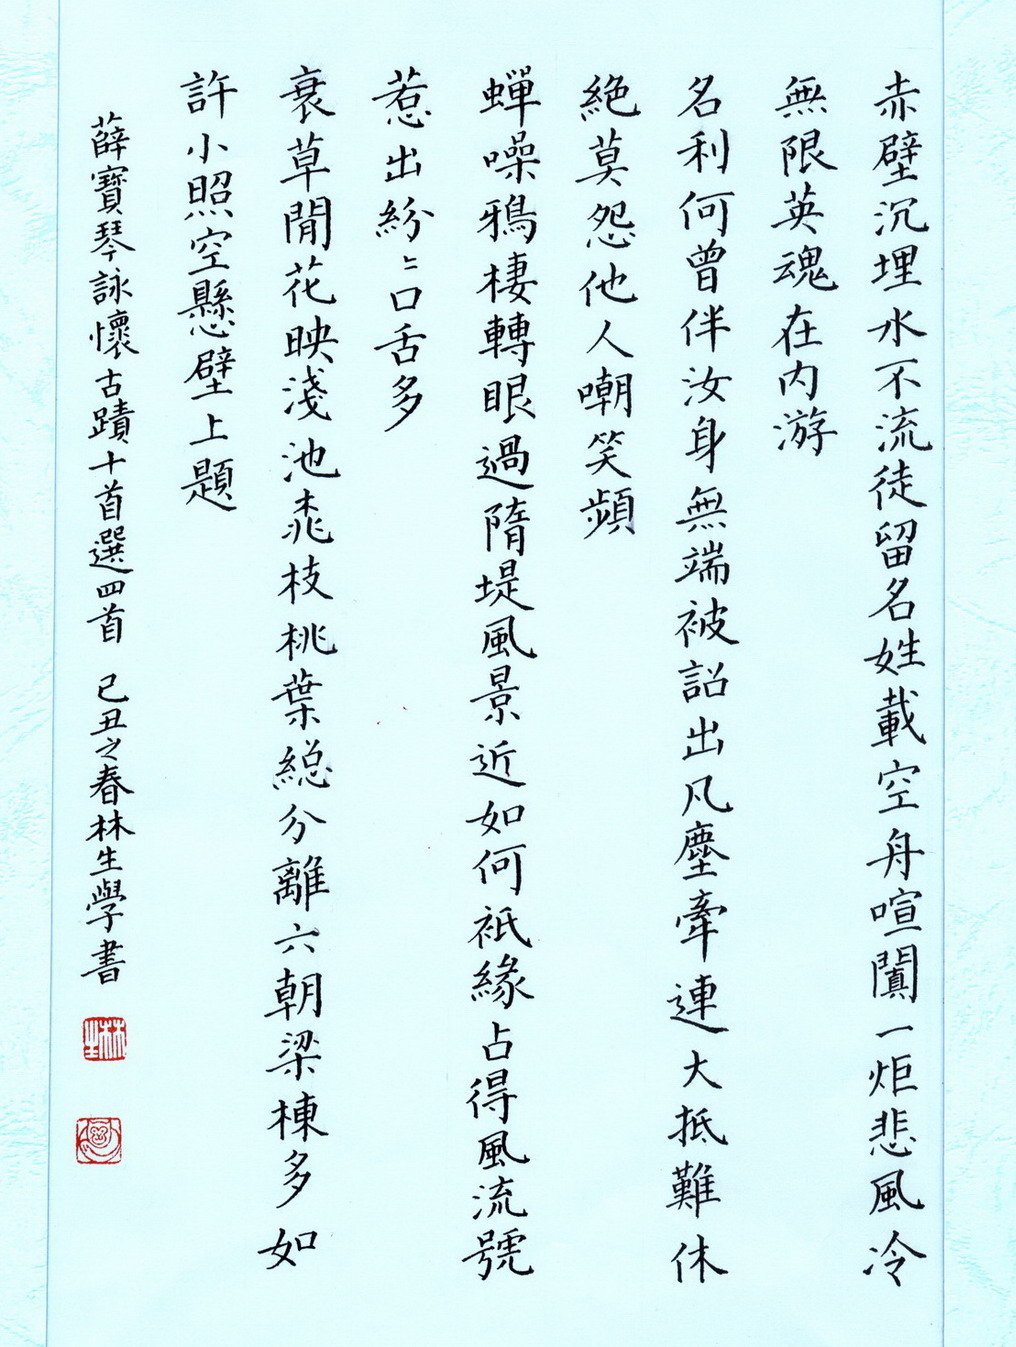 赤壁沉埋水不流徒留名姓載空舟喧闐一炬悲風冷
無限英魂在内游
名利何曾伴汝身無端被詔出凡塵牽連大抵難休
絶莫怨他人嘲笑頻
蟬噪鴉棲轉眼過隋堤風景近如何祇緣占得風流號
惹出紛〻口舌多
衰草閒花映淺池桃枝桃葉総分離六朝梁棟多如
許小照空懸壁上題
薛寶琴詠懷古蹟十首選四首 己丑之春林生學書
林生